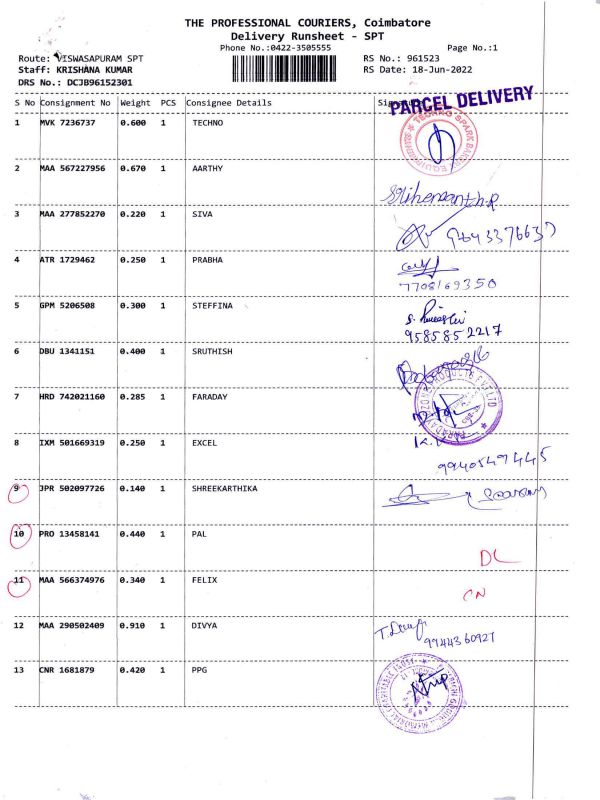 THE PROFESSIONAL COURIERS, Coimbatore
Delivery Runsheet - SPT
Phone No.:0422-3505555 Page No.:1
Route: VISWASAPURAM SPT RS No.: 961523
Staff: KRISHANA KUMAR RS Date: 18-Jun-2022
DRS No.: DCJB96152301
PARCEL DELIVERY
S No Consignment No Weight PCS Consignee Details
1 MVK 7236737 0.600 1 TECHNO
2 MAA 567227956 0.670 1 AARTHY
3 MAA 277852270 0.220 1 SIVA
4 ATR 1729462 0.250 1 PRABHA
7708169350
5 GPM 5206508 0.300 1 STEFFINA
9585852217
6 DBU 1341151 0.400 1 SRUTHISH
7 HRD 742021160 0.285 1 FARADAY
8 IXM 501669319 0.250 1 EXCEL
9940549445
9 JPR 502097726 0.140 1 SHREEKARTHIKA
10 PRO 13458141 0.440 1 PAL
DL
11 MAA 566374976 0.340 1 FELIX
CN
12 MAA 290502409 0.910 1 DIVYA
9944360927
13 CNR 1681879 0.420 1 PPG